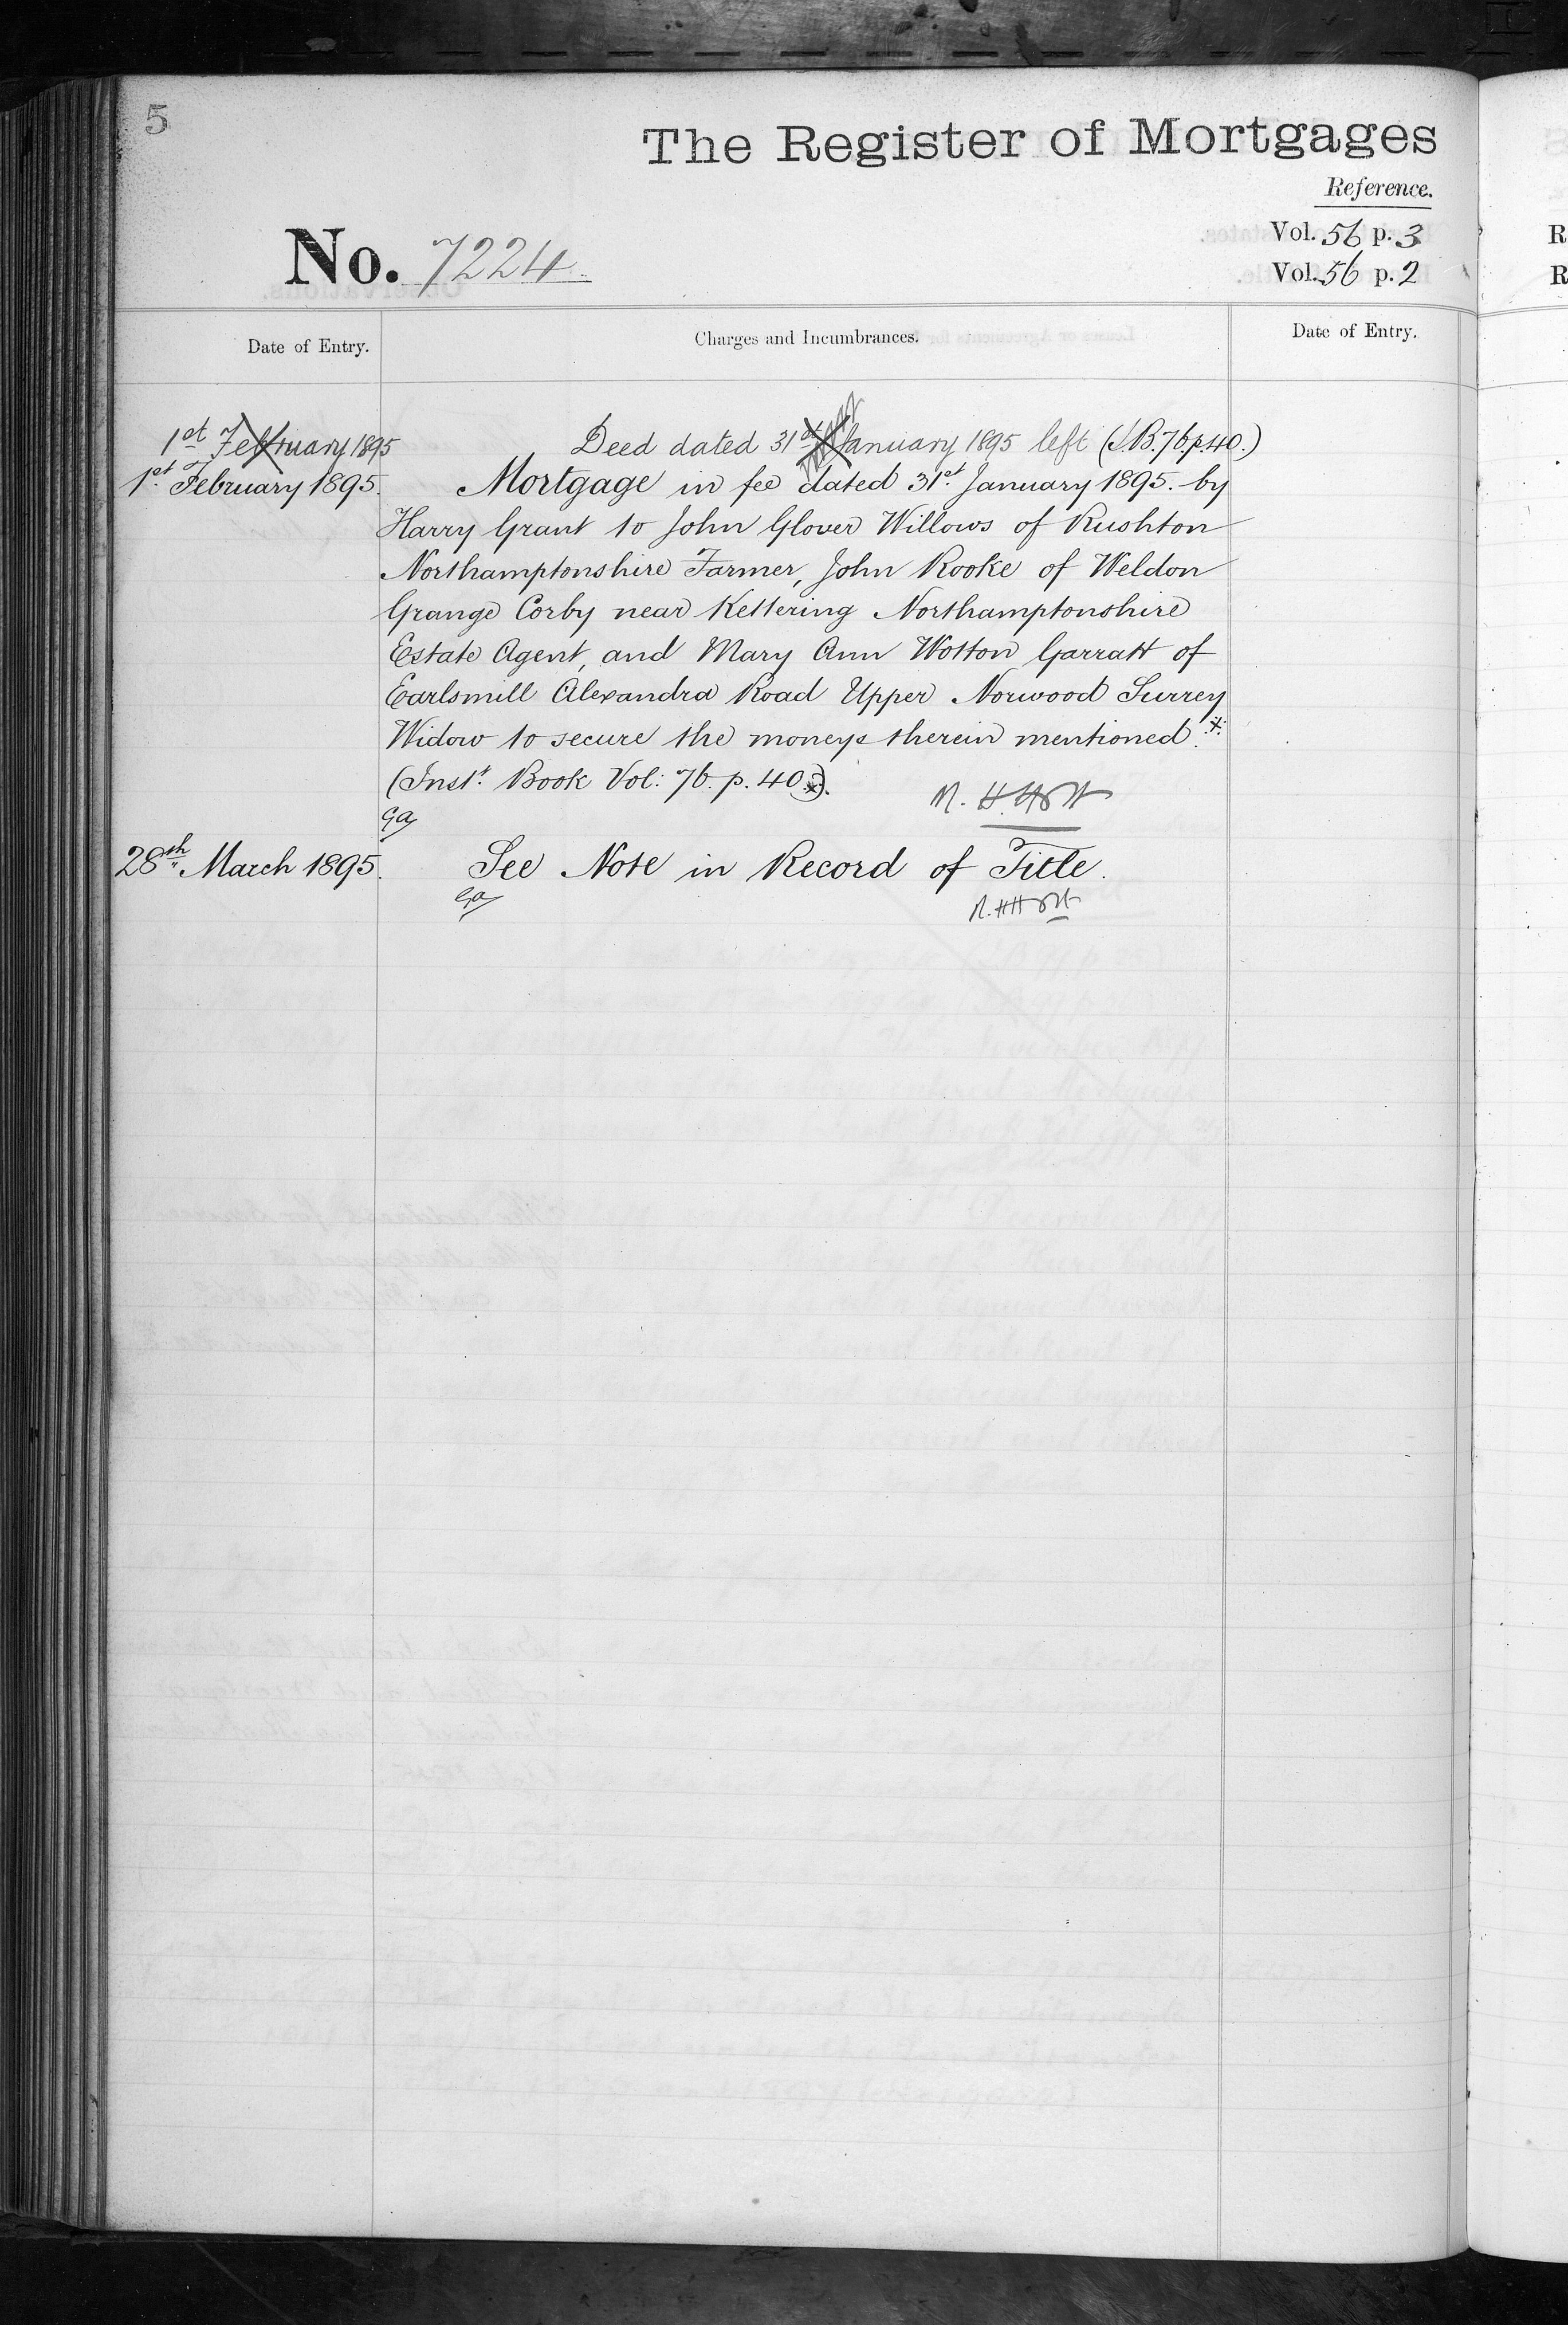 5
The Register of Mortgages
Reference.
No. 7224
Vol. 56 p. 3
Vol. 56 p. 2
Date of Entry.
Charges and Incumbrances.
Date of Entry.
1st February 1895
Deed dated 31st January 1895 left (I.B. 76. p. 40.)
1st February 1895.
Mortgage in fee dated 31st January 1895. by
Harry Grant to John Glover Willows of Rushton
Northamptonshire Farmer, John Rooke of Weldon
Grange Corby near Kettering Northamptonshire
Estate Agent, and Mary Ann Wotton Garratt of
Earlsmill Alexandra Road Upper Norwood Surrey
Widow to secure the moneys therein mentioned.
(Instt. Book Vol: 76. p. 40.)
28th March 1895.
See Note in Record of Title.
R
R